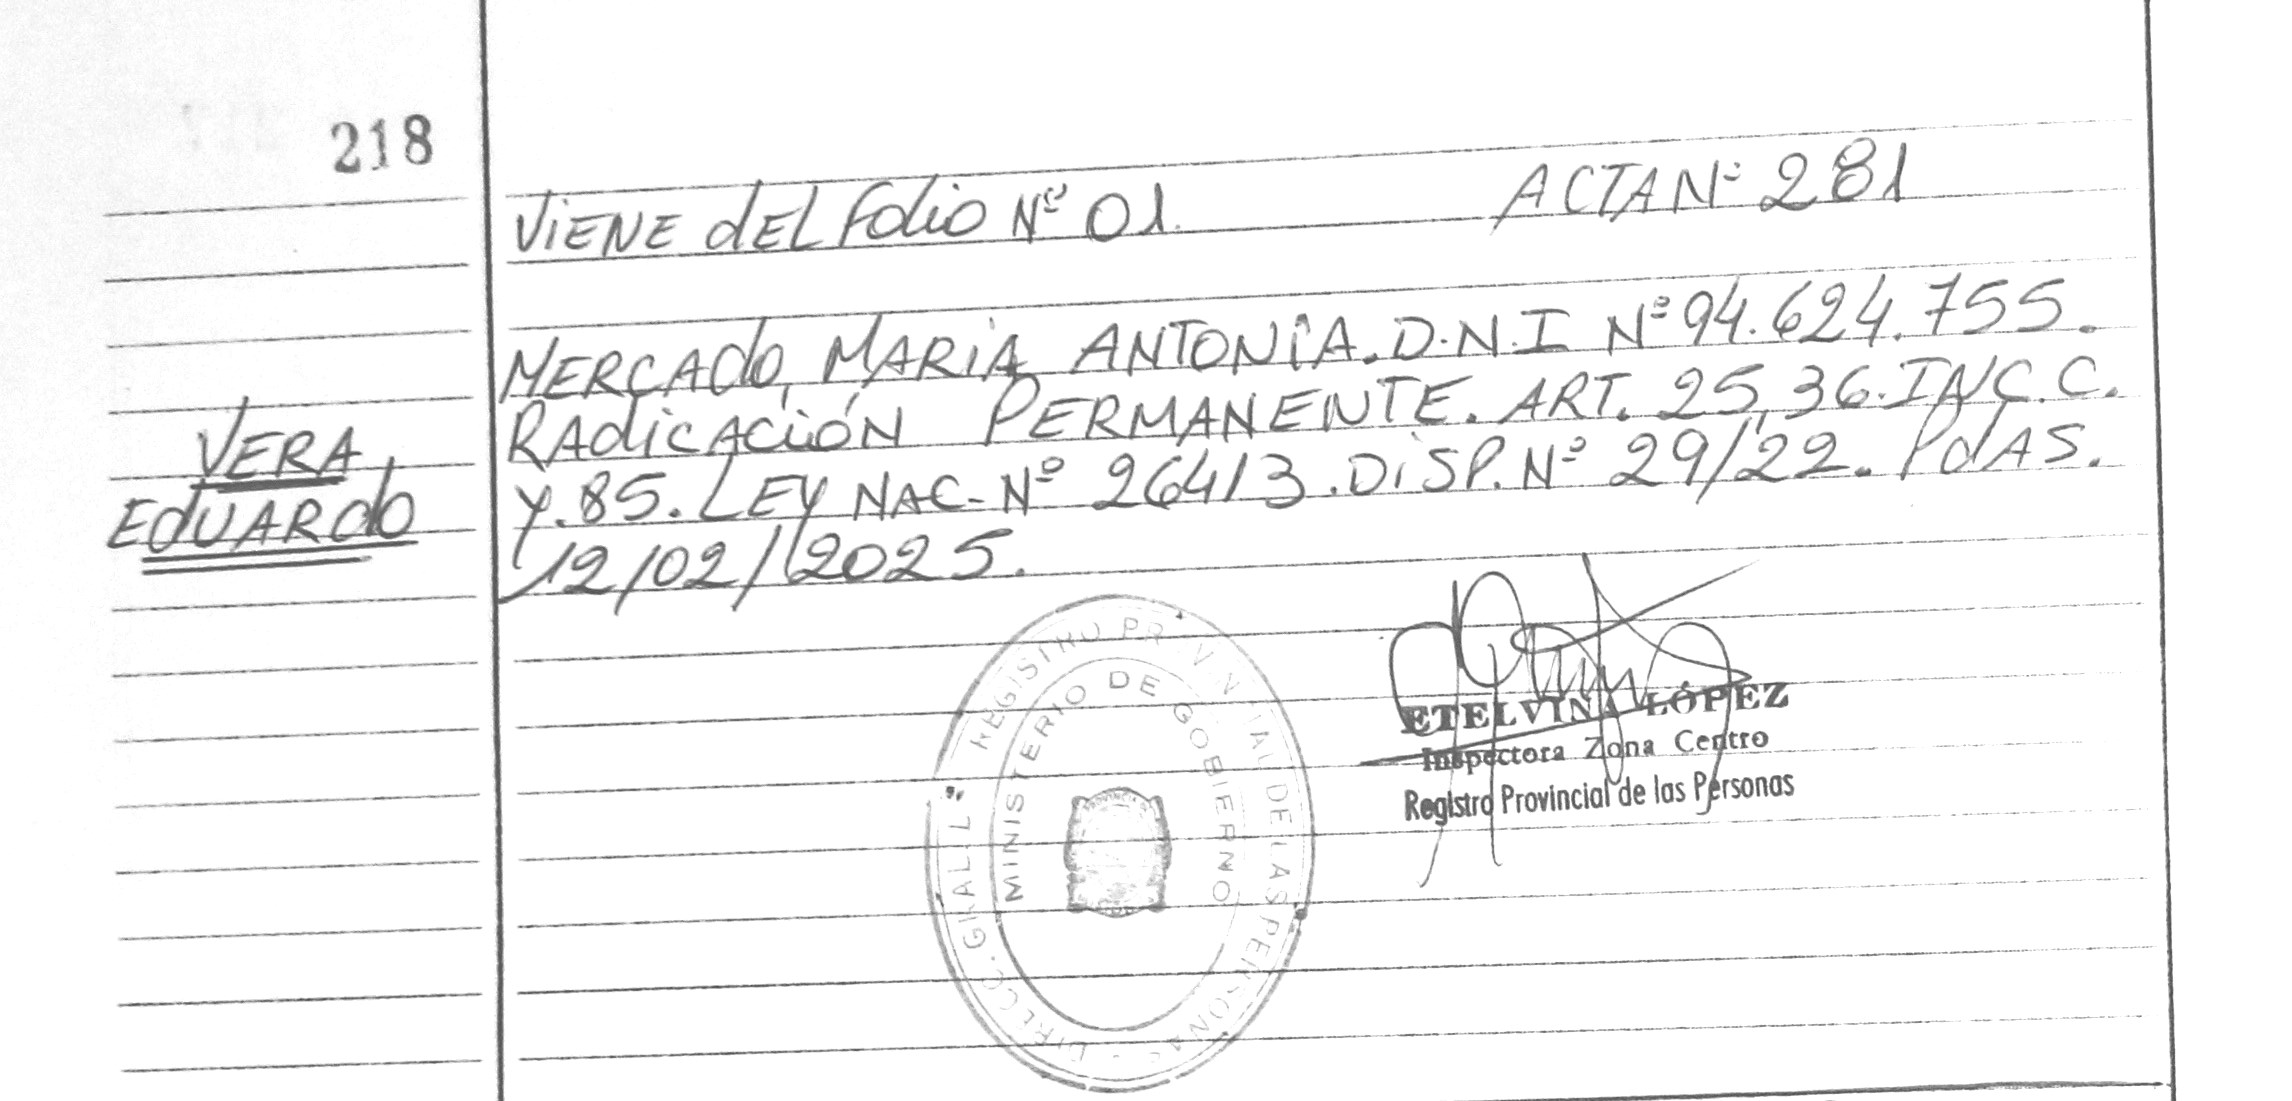 218
VIENE dEL FoLio Nº 01. ACTA Nº 281
VERA,
EdUARdo
MERCAdo, MARIA ANTONIA. D.N.I Nº 94.624.755.
RAdicACIÓN PERMANENTE. ART. 25, 36. INC. C.
Y. 85. LEY NAC- Nº 26413. DISP. Nº 29/22. PdAS.
12/02/2025.
ETELVINA LÓPEZ
Inspectora Zona Centro
Registro Provincial de las Personas
DIRECC. GRAL. REGISTRO PROVINCIAL DE LAS PERSONAS
MINISTERIO DE GOBIERNO